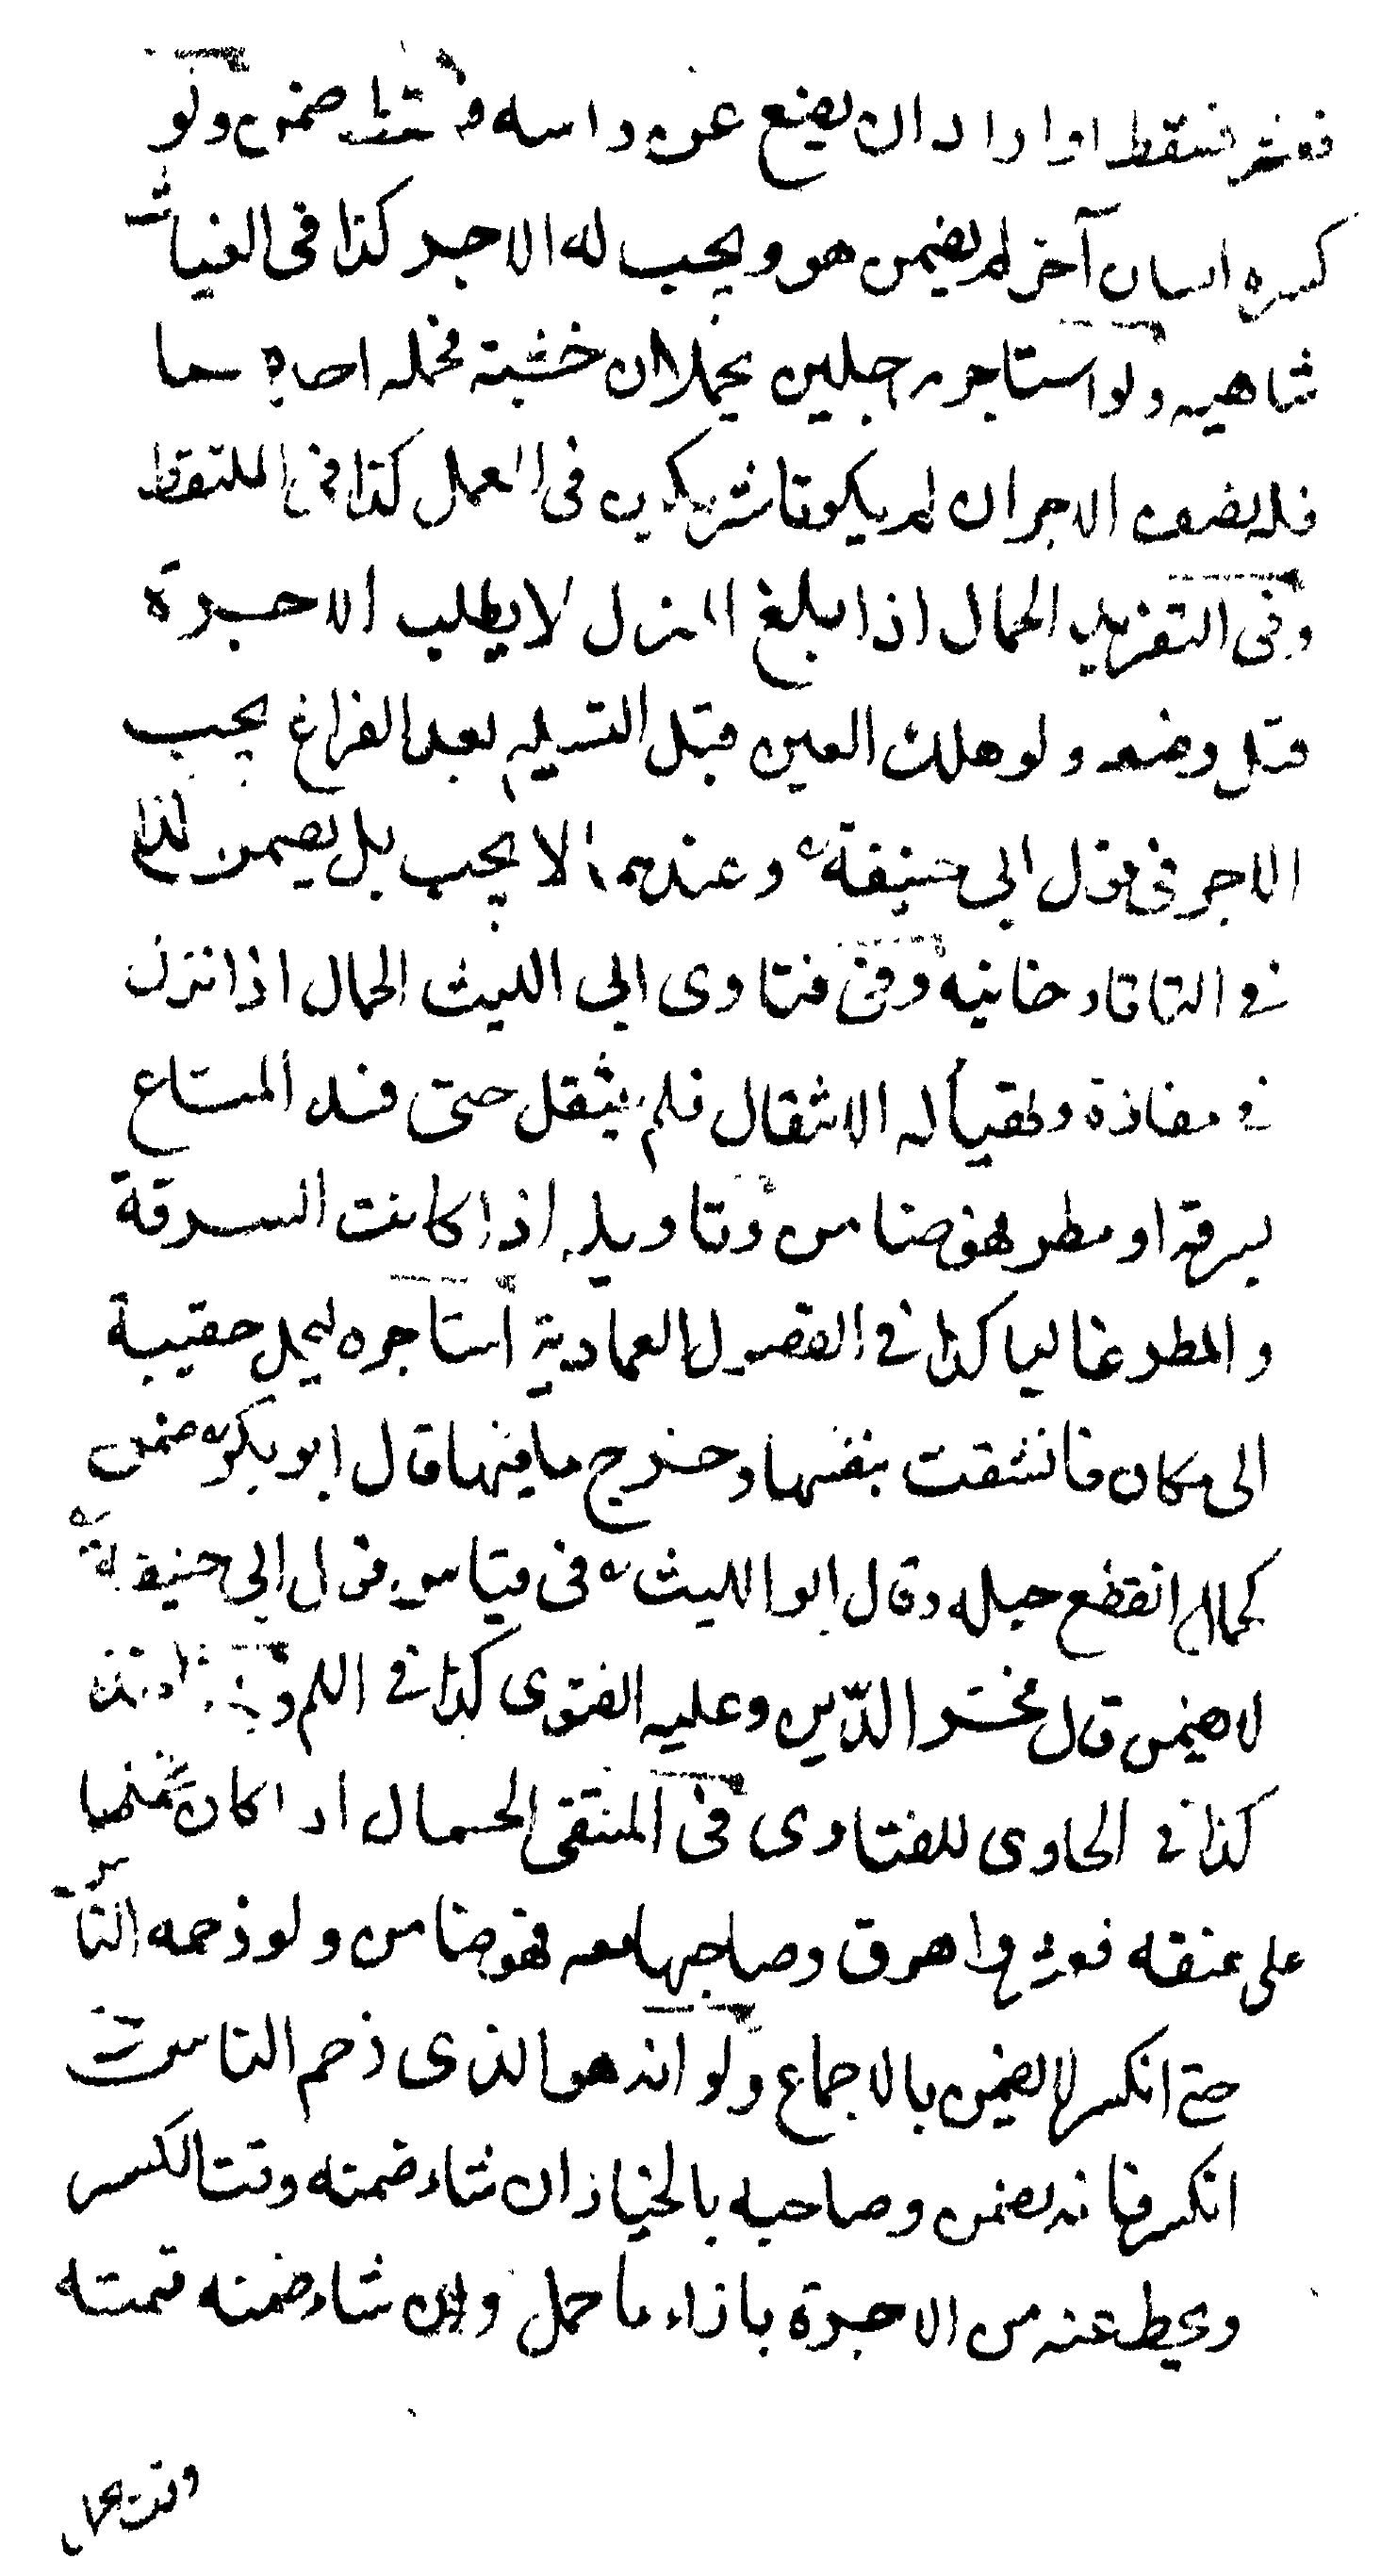 فعثر فسقط او اراد ان يضع عن راسه فسقط ضمن ولو
كسره انسان آخر لم يضمن هو ويجب له الاجر كذا فى الغياث
شاهيه ولو استاجر رجلين يحملان خشبة فحمله احدهما
فله نصف الاجر ان لم يكونا شريكين فى العمل كذا فى الملتقط
وفى التفريد الحمال اذا بلغ المنزل لا يطلب الاجرة
قبل وضعه ولو هلك العين قبل التسليم بعد الفراغ يجب
الاجر فى قول ابى حنيفة وعندهما لا يجب بل يضمن كذا
فى التاتارخانيه وفى فتاوى ابى الليث الحمال اذا نزل
فى مفازة وتهيأ له الانتقال فلم ينتقل حتى فسد المتاع
بسرقة او مطر فهو ضامن وتاويله اذا كانت السرقة
والمطر غالبا كذا فى الفصول العمادية استاجره ليحمل حقيبة
الى مكان فانشقت بنفسها وخرج ما فيها قال ابو بكر ضمن
كحمال انقطع حبله وقال ابو الليث فى قياس قول ابى حنيفة
لا يضمن قال فخر الدين وعليه الفتوى كذا فى
كذا فى الحاوى للفتاوى فى المنتقى الحمال اذا كان يحملها
على عنقه فعثر واهرق وصاحبها معه فهو ضامن ولو زحمه الناس
حتى انكسر لا يضمن بالاجماع ولو انه هو الذى زحم الناس حتى
انكسر فانه يضمن وصاحبه بالخيار ان شاء ضمنه وقت الكسر
ويحط عنه من الاجرة بازاء ما حمل وان شاء ضمنه قيمته
وقت الحمل